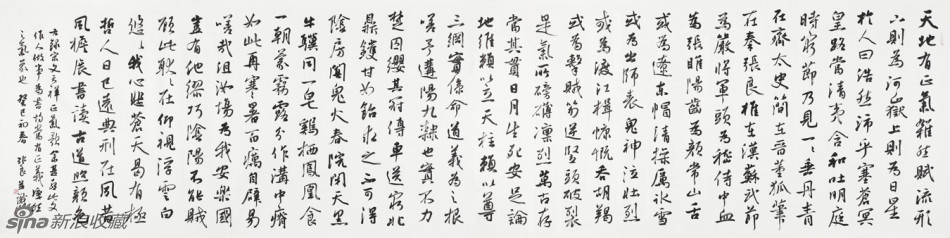 天地有正氣雜然賦流形
下則為河嶽上則為日星
於人曰浩然沛乎塞蒼冥
皇路當清夷含和吐明庭
時窮節乃見一一垂丹青
在齊太史簡在晉董狐筆
在秦張良椎在漢蘇武節
為嚴將軍頭為嵇侍中血
為張睢陽齒為顏常山舌
或為遼東帽清操厲冰雪
或為出師表鬼神泣壯烈
或為渡江楫慷慨吞胡羯
或為擊賊笏逆豎頭破裂
是氣所磅礴凜烈萬古存
當其貫日月生死安足論
地維賴以立天柱賴以尊
三綱實係命道義為之根
嗟予遘陽九隸也實不力
楚囚纓其冠傳車送窮北
鼎鑊甘如飴求之不可得
陰房闃鬼火春院閟天黑
牛驥同一皂雞棲鳳凰食
一朝蒙霧露分作溝中瘠
如此再寒暑百癘自辟易
嗟哉沮洳場為我安樂國
豈有他繆巧陰陽不能賊
顧此耿耿在仰視浮雲白
悠悠我心悲蒼天曷有極
哲人日已遠典刑在夙昔
風檐展書讀古道照顏色
文天祥正氣歌
癸巳初春
sina新浪收藏